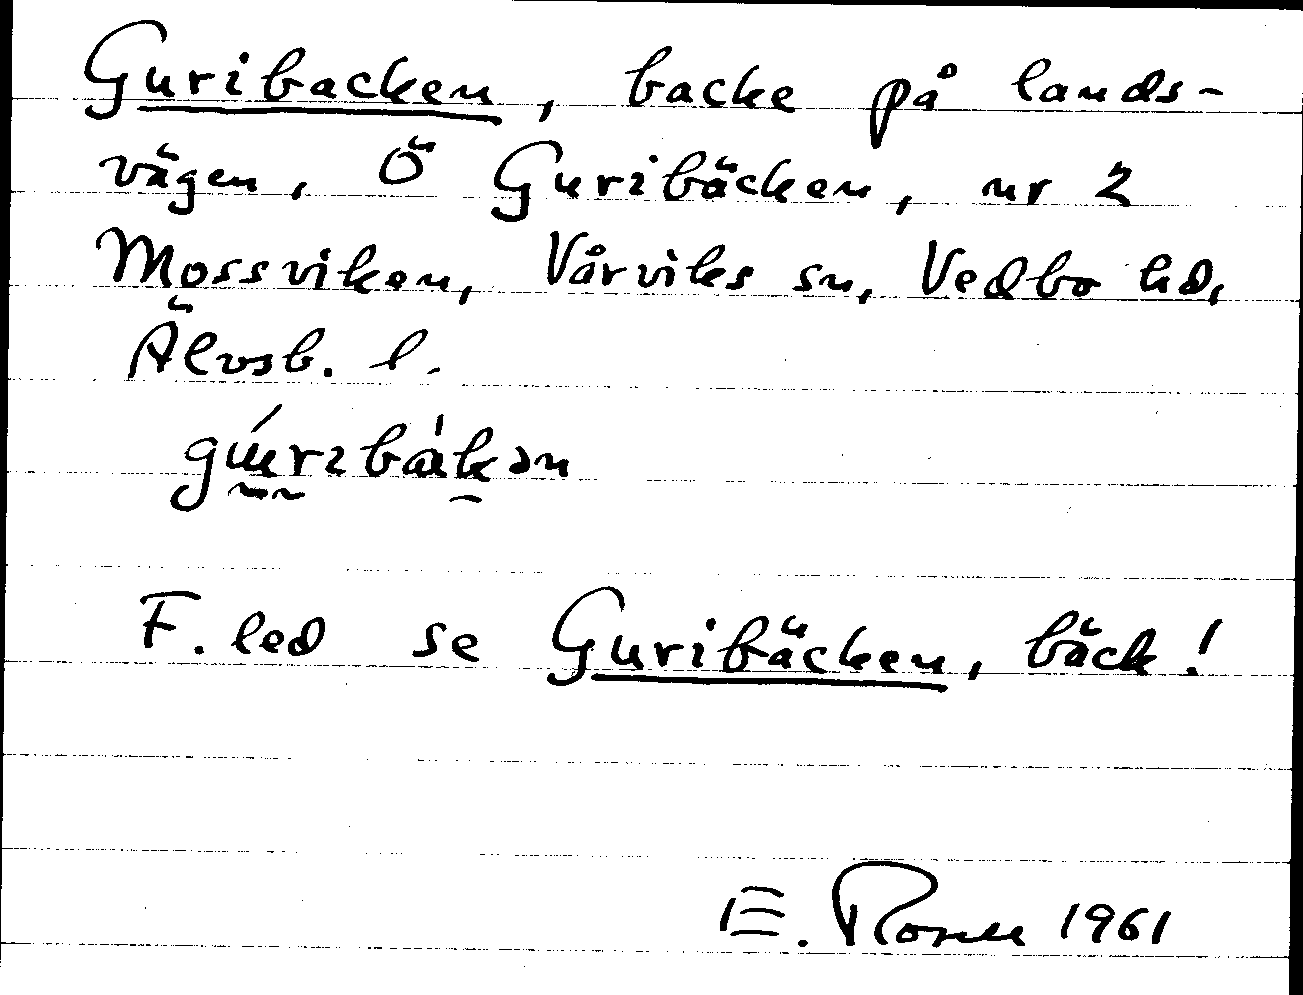 Guribacken, backe på lands-
vägen, Ö Guribäcken, nr 2
Mossviken, Vårviks sn, Vedbo hd,
Älvsb. l.
F. led se Guribäcken, bäck!
E. 1961